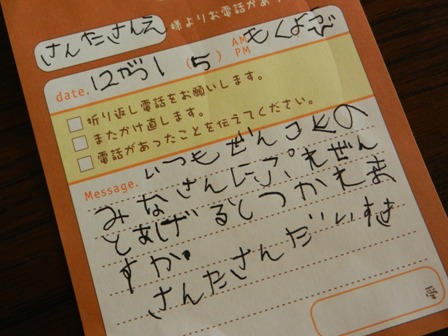 さんたさんえ 様よりお電話があ
date. 12がつ1 (5) AM PM もくようび
折り返し電話をお願いします。
またかけ直します。
電話があったことを伝えてください。
Message. いつもぜんせかいの
みなさんにぷれぜん
とあげるとつかれま
すか。
さんたさんだいすき
受